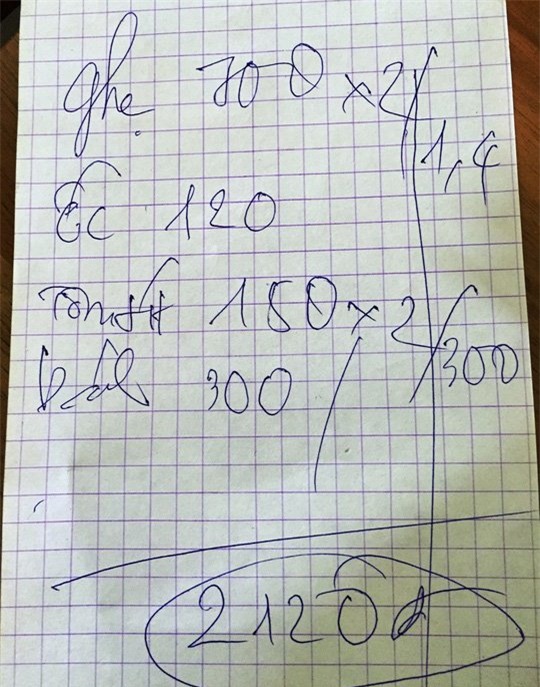 ghẹ 700 x 2/ 1,4
Ốc 120
Tôm sú 150 x 2/ 300
300
2120đ